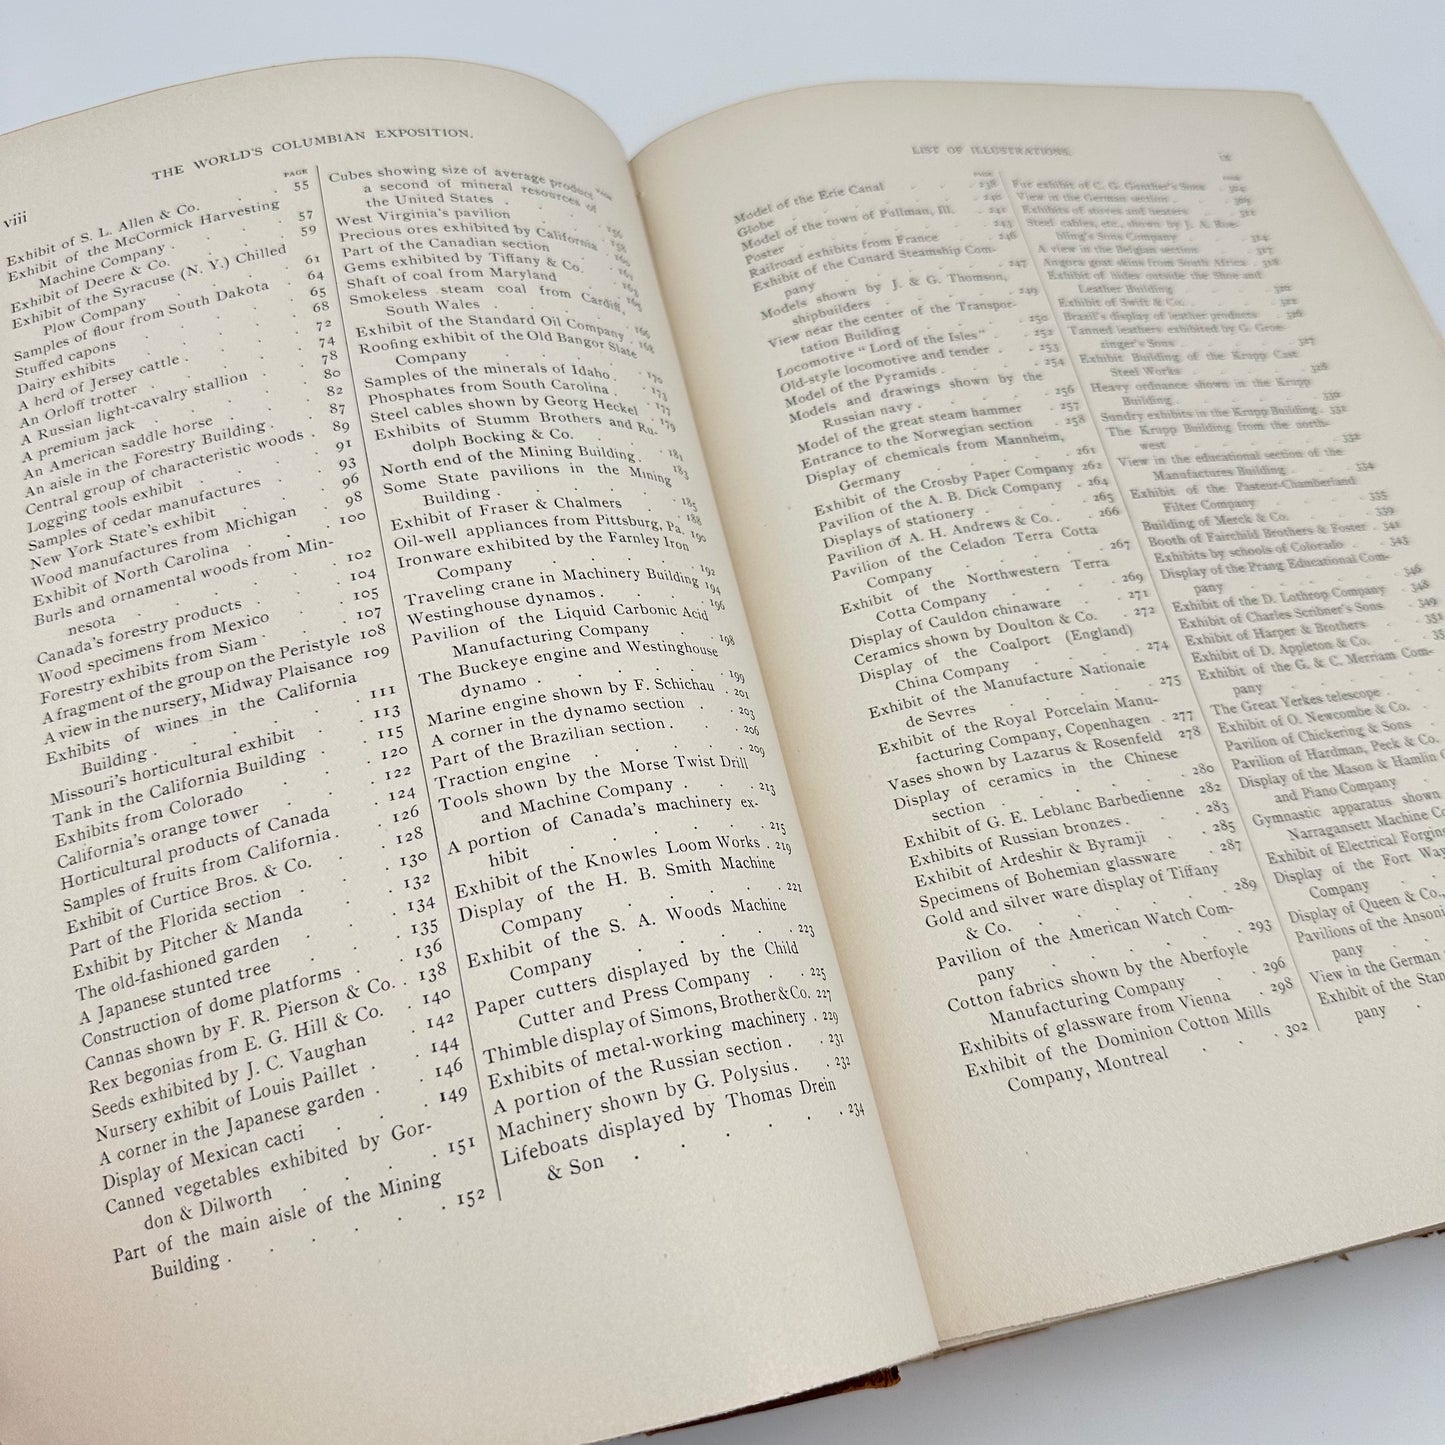 viii
THE WORLD'S COLUMBIAN EXPOSITION.
PAGE
Exhibit of S. L. Allen & Co. . 55
Exhibit of the McCormick Harvesting
Machine Company . 57
Exhibit of Deere & Co. . 59
Exhibit of the Syracuse (N. Y.) Chilled
Plow Company . 61
Samples of flour from South Dakota . 64
Stuffed capons . 65
Dairy exhibits . 68
A herd of Jersey cattle . 72
An Orloff trotter . 74
A Russian light-cavalry stallion . 78
A premium jack . 80
An American saddle horse . 82
An aisle in the Forestry Building . 87
Central group of characteristic woods . 89
Logging tools exhibit . 91
Samples of cedar manufactures . 93
New York State's exhibit . 96
Wood manufactures from Michigan . 98
Exhibit of North Carolina . 100
Burls and ornamental woods from Min-
nesota . 102
Canada's forestry products . 104
Wood specimens from Mexico . 105
Forestry exhibits from Siam . 107
A fragment of the group on the Peristyle 108
A view in the nursery, Midway Plaisance 109
Exhibits of wines in the California
Building . 111
Missouri's horticultural exhibit . 113
Tank in the California Building . 115
Exhibits from Colorado . 120
California's orange tower . 122
Horticultural products of Canada . 124
Samples of fruits from California . 126
Exhibit of Curtice Bros. & Co. . 128
Part of the Florida section . 130
Exhibit by Pitcher & Manda . 132
The old-fashioned garden . 134
A Japanese stunted tree . 135
Construction of dome platforms . 136
Cannas shown by F. R. Pierson & Co. . 138
Rex begonias from E. G. Hill & Co. . 140
Seeds exhibited by J. C. Vaughan . 142
Nursery exhibit of Louis Paillet . 144
A corner in the Japanese garden . 146
Display of Mexican cacti . 149
Canned vegetables exhibited by Gor-
don & Dilworth . 151
Part of the main aisle of the Mining
Building . 152
PAGE
Cubes showing size of average product
a second of mineral resources of
the United States . 156
West Virginia's pavilion . 158
Precious ores exhibited by California . 160
Part of the Canadian section
Gems exhibited by Tiffany & Co.
Shaft of coal from Maryland
Smokeless steam coal from Cardiff,
South Wales . 166
Exhibit of the Standard Oil Company . 168
Roofing exhibit of the Old Bangor Slate
Company . 170
Samples of the minerals of Idaho . 173
Phosphates from South Carolina . 177
Steel cables shown by Georg Heckel . 179
Exhibits of Stumm Brothers and Ru-
dolph Bocking & Co. . 181
North end of the Mining Building . 183
Some State pavilions in the Mining
Building . 185
Exhibit of Fraser & Chalmers . 188
Oil-well appliances from Pittsburg, Pa. . 190
Ironware exhibited by the Farnley Iron
Company . 192
Traveling crane in Machinery Building 194
Westinghouse dynamos . 196
Pavilion of the Liquid Carbonic Acid
Manufacturing Company . 198
The Buckeye engine and Westinghouse
dynamo . 199
Marine engine shown by F. Schichau . 201
A corner in the dynamo section . 203
Part of the Brazilian section . 206
Traction engine . 209
Tools shown by the Morse Twist Drill
and Machine Company . 213
A portion of Canada's machinery ex-
hibit . 215
Exhibit of the Knowles Loom Works . 219
Display of the H. B. Smith Machine
Company . 221
Exhibit of the S. A. Woods Machine
Company . 223
Paper cutters displayed by the Child
Cutter and Press Company . 225
Thimble display of Simons, Brother & Co. 227
Exhibits of metal-working machinery . 229
A portion of the Russian section . 231
Machinery shown by G. Polysius . 232
Lifeboats displayed by Thomas Drein
& Son . 234
LIST OF ILLUSTRATIONS.
ix
PAGE
Model of the Erie Canal . 238
Globe . 240
Model of the town of Pullman, Ill. . 241
Poster . 243
Railroad exhibits from France . 246
Exhibit of the Cunard Steamship Com-
pany . 247
Models shown by J. & G. Thomson,
shipbuilders . 249
View near the center of the Transpor-
tation Building . 250
Locomotive "Lord of the Isles" . 252
Old-style locomotive and tender . 253
Model of the Pyramids . 254
Models and drawings shown by the
Russian navy . 256
Model of the great steam hammer . 257
Entrance to the Norwegian section . 258
Display of chemicals from Mannheim,
Germany . 261
Exhibit of the Crosby Paper Company 262
Pavilion of the A. B. Dick Company . 264
Displays of stationery . 265
Pavilion of A. H. Andrews & Co. . 266
Pavilion of the Celadon Terra Cotta
Company . 267
Exhibit of the Northwestern Terra
Cotta Company . 269
Display of Cauldon chinaware . 271
Ceramics shown by Doulton & Co. . 272
Display of the Coalport (England)
China Company . 274
Exhibit of the Manufacture Nationaie
de Sevres . 275
Exhibit of the Royal Porcelain Manu-
facturing Company, Copenhagen . 277
Vases shown by Lazarus & Rosenfeld 278
Display of ceramics in the Chinese
section . 280
Exhibit of G. E. Leblanc Barbedienne 282
Exhibits of Russian bronzes . 283
Exhibit of Ardeshir & Byramji . 285
Specimens of Bohemian glassware . 287
Gold and silver ware display of Tiffany
& Co. . 289
Pavilion of the American Watch Com-
pany . 293
Cotton fabrics shown by the Aberfoyle
Manufacturing Company . 296
Exhibits of glassware from Vienna . 298
Exhibit of the Dominion Cotton Mills
Company, Montreal . 302
Fur exhibit of C. G. Gunther's Sons . 304
View in the German section
Exhibits of stoves and heaters
Steel cables, etc., shown by J. A. Roe-
bling's Sons Company . 314
A view in the Belgian section . 317
Angora goat skins from South Africa . 318
Exhibit of hides outside the Shoe and
Leather Building
Exhibit of Swift & Co.
Brazil's display of leather products . 326
Tanned leathers exhibited by G. Groe-
zinger's Sons . 327
Exhibit Building of the Krupp Cast
Steel Works . 328
Heavy ordnance shown in the Krupp
Building . 330
Sundry exhibits in the Krupp Building . 331
The Krupp Building from the north-
west . 332
View in the educational section of the
Manufactures Building . 334
Exhibit of the Pasteur-Chamberland
Filter Company . 335
Building of Merck & Co. . 339
Booth of Fairchild Brothers & Foster . 341
Exhibits by schools of Colorado . 343
Display of the Prang Educational Com-
pany . 346
Exhibit of the D. Lothrop Company . 348
Exhibit of Charles Scribner's Sons . 349
Exhibit of Harper & Brothers
Exhibit of D. Appleton & Co.
Exhibit of the G. & C. Merriam Com-
pany
The Great Yerkes telescope
Exhibit of O. Newcombe & Co.
Pavilion of Chickering & Sons
Pavilion of Hardman, Peck & Co.
Display of the Mason & Hamlin
and Piano Company
Gymnastic apparatus shown
Narragansett Machine
Exhibit of Electrical Forging
Display of the Fort
Company
Display of Queen & Co.,
Pavilions of the
pany
View in the German
Exhibit of the
pany